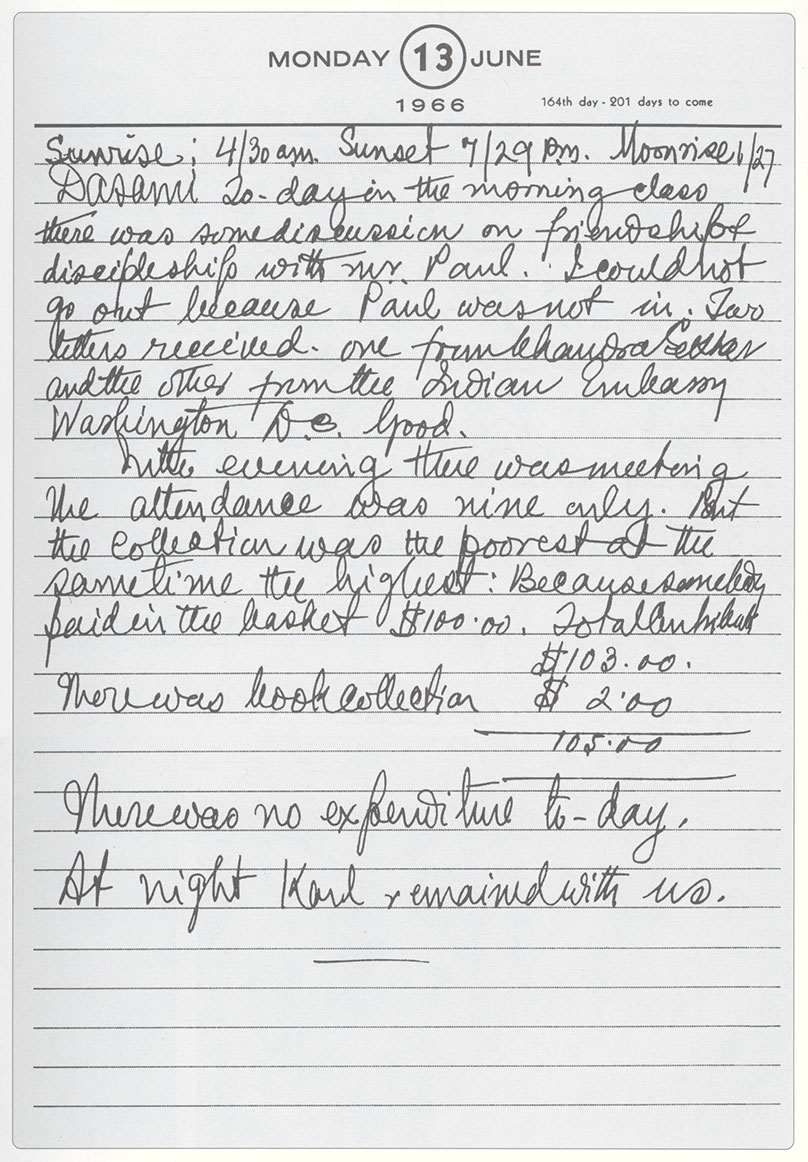 MONDAY 13 JUNE
1966 164th day - 201 days to come
Sunrise; 4/30 am. Sunset 7/29 P.m. Moonrise 1/27
DASAMI To-day in the morning class
there was some discussion on friendship of
discipleship with mr. Paul. I could not
go out because Paul was not in. Two
letters received. one from Chandra Sekhar
and the other from the Indian Embassy
Washington D.C. Good.
In the evening there was meeting
the attendance was nine only. But
the collection was the poorest at the
sametime the highest: Because somebody
paid in the basket $100.00. Total
$103.00.
There was book collection $ 2.00
105.00
There was no expenditure to-day.
At night Karl remained with us.